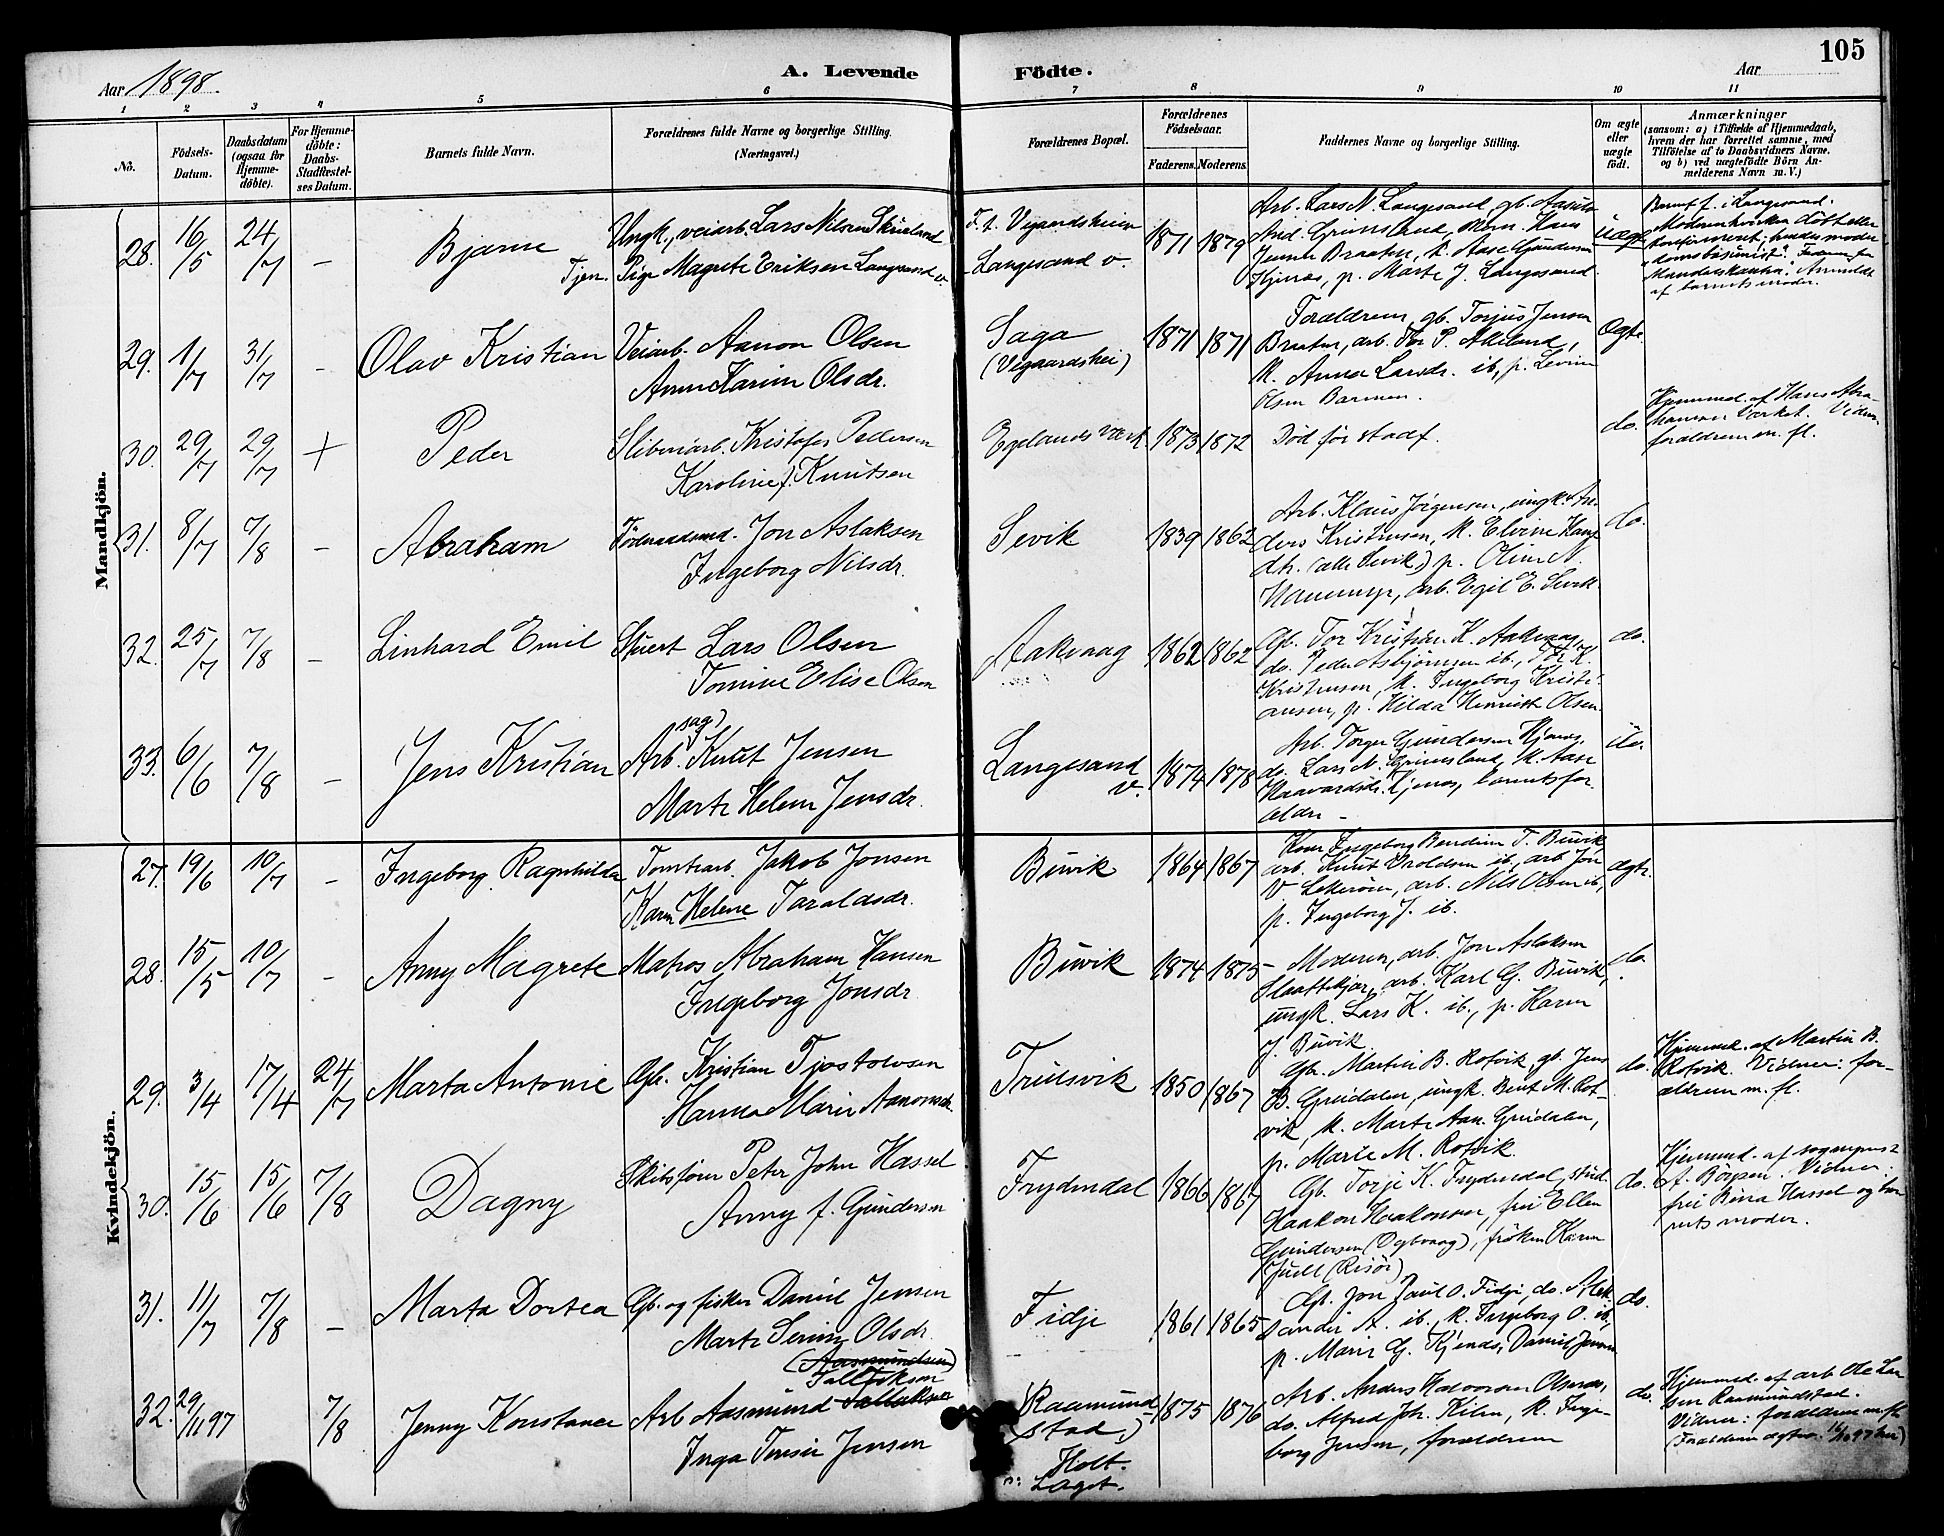 105
Aar 1898.
A. Levende
Födte.
Aar
1 2 3 4 5 6 7 8 9 10 11
No.
Födsels-
Datum.
Daabsdatum
(ogsaa for
Hjemme-
döbte).
For Hjemme-
döbte:
Daabs-
Stadfæstel-
ses Datum.
Barnets fulde Navn.
Forældrenes fulde Navne og borgerlige Stilling.
(Næringsvei.)
Forældrenes Bopæl.
Forældrenes
Födselsaar.
Faderens. Moderens.
Faddernes Navne og borgerlige Stilling.
Om ægte
eller
uægte
födt.
Anmærkninger
(saasom: a) i Tilfælde af Hjemmedaab,
hvem der har forrettet samme, med
Tilföielse af to Daabsvidners Navne.
og b) ved uægtefödte Börn An-
melderens Navn m. V.)
Mandkjön.
28. 16/5 24/7 –
Bjarne
Ungk., veiarb. Lars Nilsen
Tjen. Pige Magrete Eriksen Langesand v.
F. t. Vegaardsheien
Langesand v.
1871 1879
Arb. Lars N. Langesand, gb.
Jensen Braaten, k. Aase Gundersen
Kjenes, p. Marte J. Langesand.
uægte
Barnet f. i Langesand.
Moderen hverken döbt eller
konfirmeret, hendes moder
af barnets moder.
29. 1/7 31/7 –
Olav Kristian
Veiarb. Aanon Olsen
Anne Karine Olsdr.
Saga
(Vegaardshei)
1871 1871
Forældrene, gb. Torjus Jensen
Braaten, arb. Tor P. Akeland,
k. Anna Larsdr. ib, p. Levine
Olsen Barmen.
Ægte
30. 29/7 29/7 +
Peder
Sliberiarb. Kristofer Pedersen
Karoline f. Knutsen
Egelands værk
1873 1872
Död för stadf.
do.
Hjemmed. af Hans Abra-
hamsen Værket. Vidner
forældrene m. fl.
31. 8/7 7/8 –
Abraham
Föderaadsmd. Jon Aslaksen
Ingeborg Nilsdr.
Sevik
1839 1862
Arb. Klaus Jörgensen, ungk. An-
ders Kristensen, k. Elvine Hans
dtr. (alle Sevik) p. Oline N.
arb. Egil E. Sevik.
do.
32. 25/7 7/8 –
Linhard Emil
Stuert Lars Olsen
Tomine Elise Olsen
Aakvaag
1862 1862
Gb. Tor Kristian K. Aakvaag,
do. Peder Asbjörnsen ib., Tor K.
Kristensen, k. Ingeborg Kristi-
ansen, p. Hilda Henriette Olsen.
do.
33. 6/6 7/8 –
Jens Kristian
sag)
Arb. Knut Jensen
Marte Helene Jensdr.
Langesand
v.
1874 1878
Arb. Torger Gundersen Kjenes,
do. Lars N. Grimsland, k. Aase
Haavardsdr. Kjenes, barnets for
ældre –
do.
Kvindekjön.
27. 19/6 10/7 –
Ingeborg Ragnhilda
Tomtearb. Jakob Jonsen
Karen Helene Taraldsdr.
Buvik
1864 1867
Kone Ingeborg Bendine T. Buvik
arb. Knut Uroldsen ib., arb Jon
V Lekerön, arb. Nils Olsen ib,
p. Ingeborg J. ib.
ægte.
28. 15/5 10/7 –
Anny Magrete
Matros Abraham Hansen
Ingeborg Jonsdr.
Buvik
1874 1875
Moderen, arb. Jon Aslaksen
Slaattekjær, arb. Karl G. Buvik,
ungk. Lars K. ib., p. Karen
J. Buvik.
do.
29. 3/4 17/4 24/7
Marta Antonie
Gb. Kristian Tjostolvsen
Hanna Marie Aanonsdr.
Trulsvik
1850 1867
Gb. Martin B. Rotvik, gb. Jens
B. Grudalen, ungk. Bent M. Rot-
vik, k. Marte Aan. Grudalen,
p. Marie M. Rotvik.
do.
Hjemmed. af Martin B.
Rotvik. Vidner: for-
ældrene m. fl.
30. 15/6 15/6 7/8
Dagny
Skibsförer Peter John Hassel
Anny f. Gundersen
Frydendal
1866 1867
Gb. Torje K. Frydendal, stud.
Haakon Haakonsen, fru Ellen
Gundersen (Dybvaag), fröken Karen
Juell (Risör)
do.
Hjemmed. af sogneprest
A. Börgen. Vidner:
fru Bina Hassel og bar
nets moder.
31. 11/7 7/8 –
Marta Dortea
Gb. og fisker Daniel Jensen
Marte Serine Olsdr.
Fidje
1861 1865
Gb. Jon Paul O. Fidje, do. Alek
sander A. ib., k. Ingeborg O. ib,
p. Marie G. Kjenes, Daniel Jensen
do.
32. 29/11 97 7/8
Jenny Konstance
(Aasmundsen)
Tallefksen
Arb Aasmund Tallaksen
Inga Tersie Jensen
(Raamund
stad,)
Holt.
n: Laget.
1875 1876
Arb. Anders Halvorsen
do. Alfred Joh. Kilen, k. Inge-
borg Jensen, forældrene
do.
Hjemmed. af arb Ole Lar
sen Raamundstad.
Vidner: forældrene m. fl.